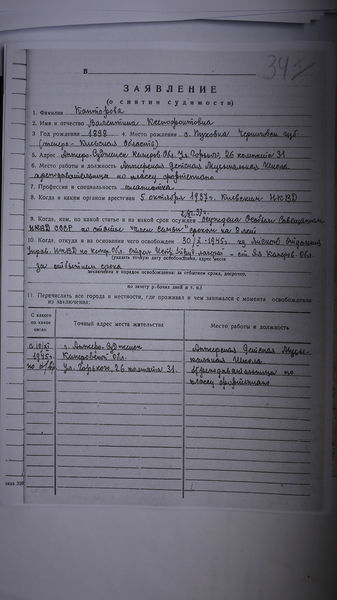 В
341
ЗАЯВЛЕНИЕ
(о снятии судимости)
1. Фамилия Канторова
2. Имя и отчество Валентина Ксенофонтовна
3 Год рождения 1898 4. Место рождения с. Пуховка Чернигов. губ
(теперь - Киевская Область)
5. Адрес Анжеро-Судженск Кемеров. Обл. Ул. Горького, 26 комната 31
6. Место работы и должность Анжерская Детская Музыкальная Школа
преподавательница по классу фортепиано
7. Профессия и специальность пианистка
8. Когда и каким органом арестован 5 октября 1937г. Киевским НКВД
9. Когда, кем, по какой статье и на какой срок осужден осуждена Особым Совещанием
НКВД СССР по статье "Член семьи" сроком на 8 лет
10. Когда, откуда и на основании чего освобожден 30/X-1945г. из
Управ. НКВД по Кемер. Обл.
(указать точную дату освобождения, адрес места
за отбытием срока
заключения и порядок освобождения: за отбытием срока, досрочно,
по зачету р.-бочих дней и т. п.)
11. Перечислить все города и местности, где проживал и чем занимался с момента освобождения
из заключения:
С какого по какое число
Точный адрес места жительства
Место работы и должность
1945г.
г. Анжеро-Судженск
Кемеровской Обл.
ул. Горького, 26 комната 31.
Анжерская Детская Музы-
кальная Школа
преподавательница по
классу фортепиано